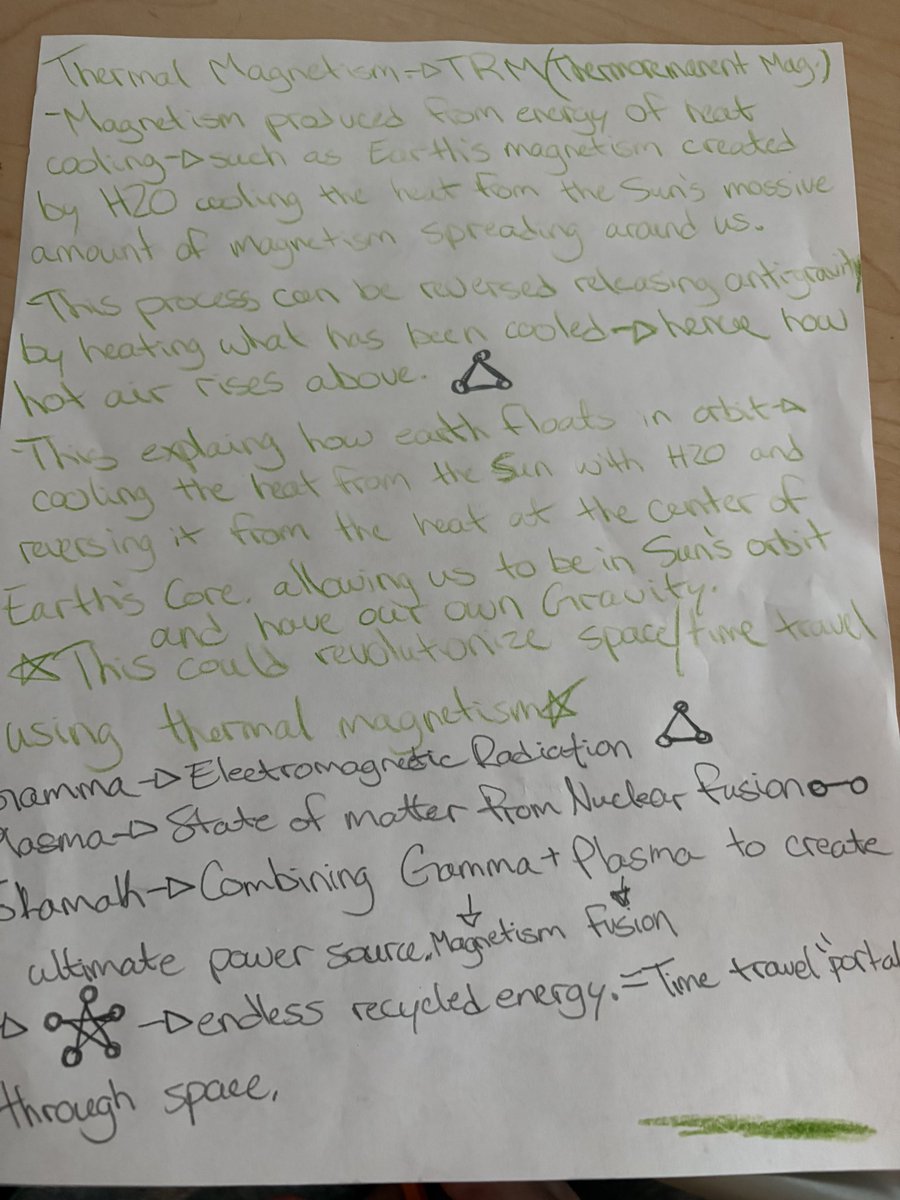 Thermal Magnetism→TRM(Thermoremanent Mag.)
-Magnetism produced from energy of heat
cooling→such as Earth's magnetism created
by H2O cooling the heat from the Sun's massive
amount of magnetism spreading around us.
-This process can be reversed releasing antigravity
by heating what has been cooled→hence how
hot air rises above.
-This explains how earth floats in orbit→
cooling the heat from the Sun with H2O and
reversing it from the heat at the center of
Earth's Core, allowing us to be in Sun's orbit
and have our own Gravity.
☆This could revolutionize space/time travel
using thermal magnetism☆
Gamma→Electromagnetic Radiation
Plasma→State of matter from Nuclear Fusion
→Combining Gamma+Plasma to create
ultimate power source. Magnetism Fusion
→endless recycled energy.=Time travel "portal
through space.